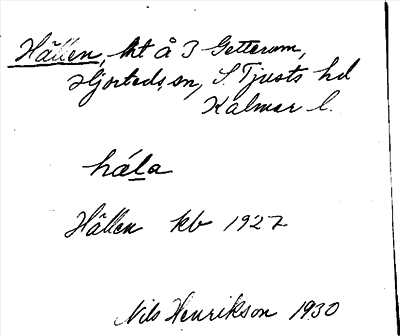 Hällen, lht å 3 Getterum,
Hjorteds sn, S Tjusts hd
Kalmar l.
hála
Hällen kb 1927
Nils Henrikson 1930